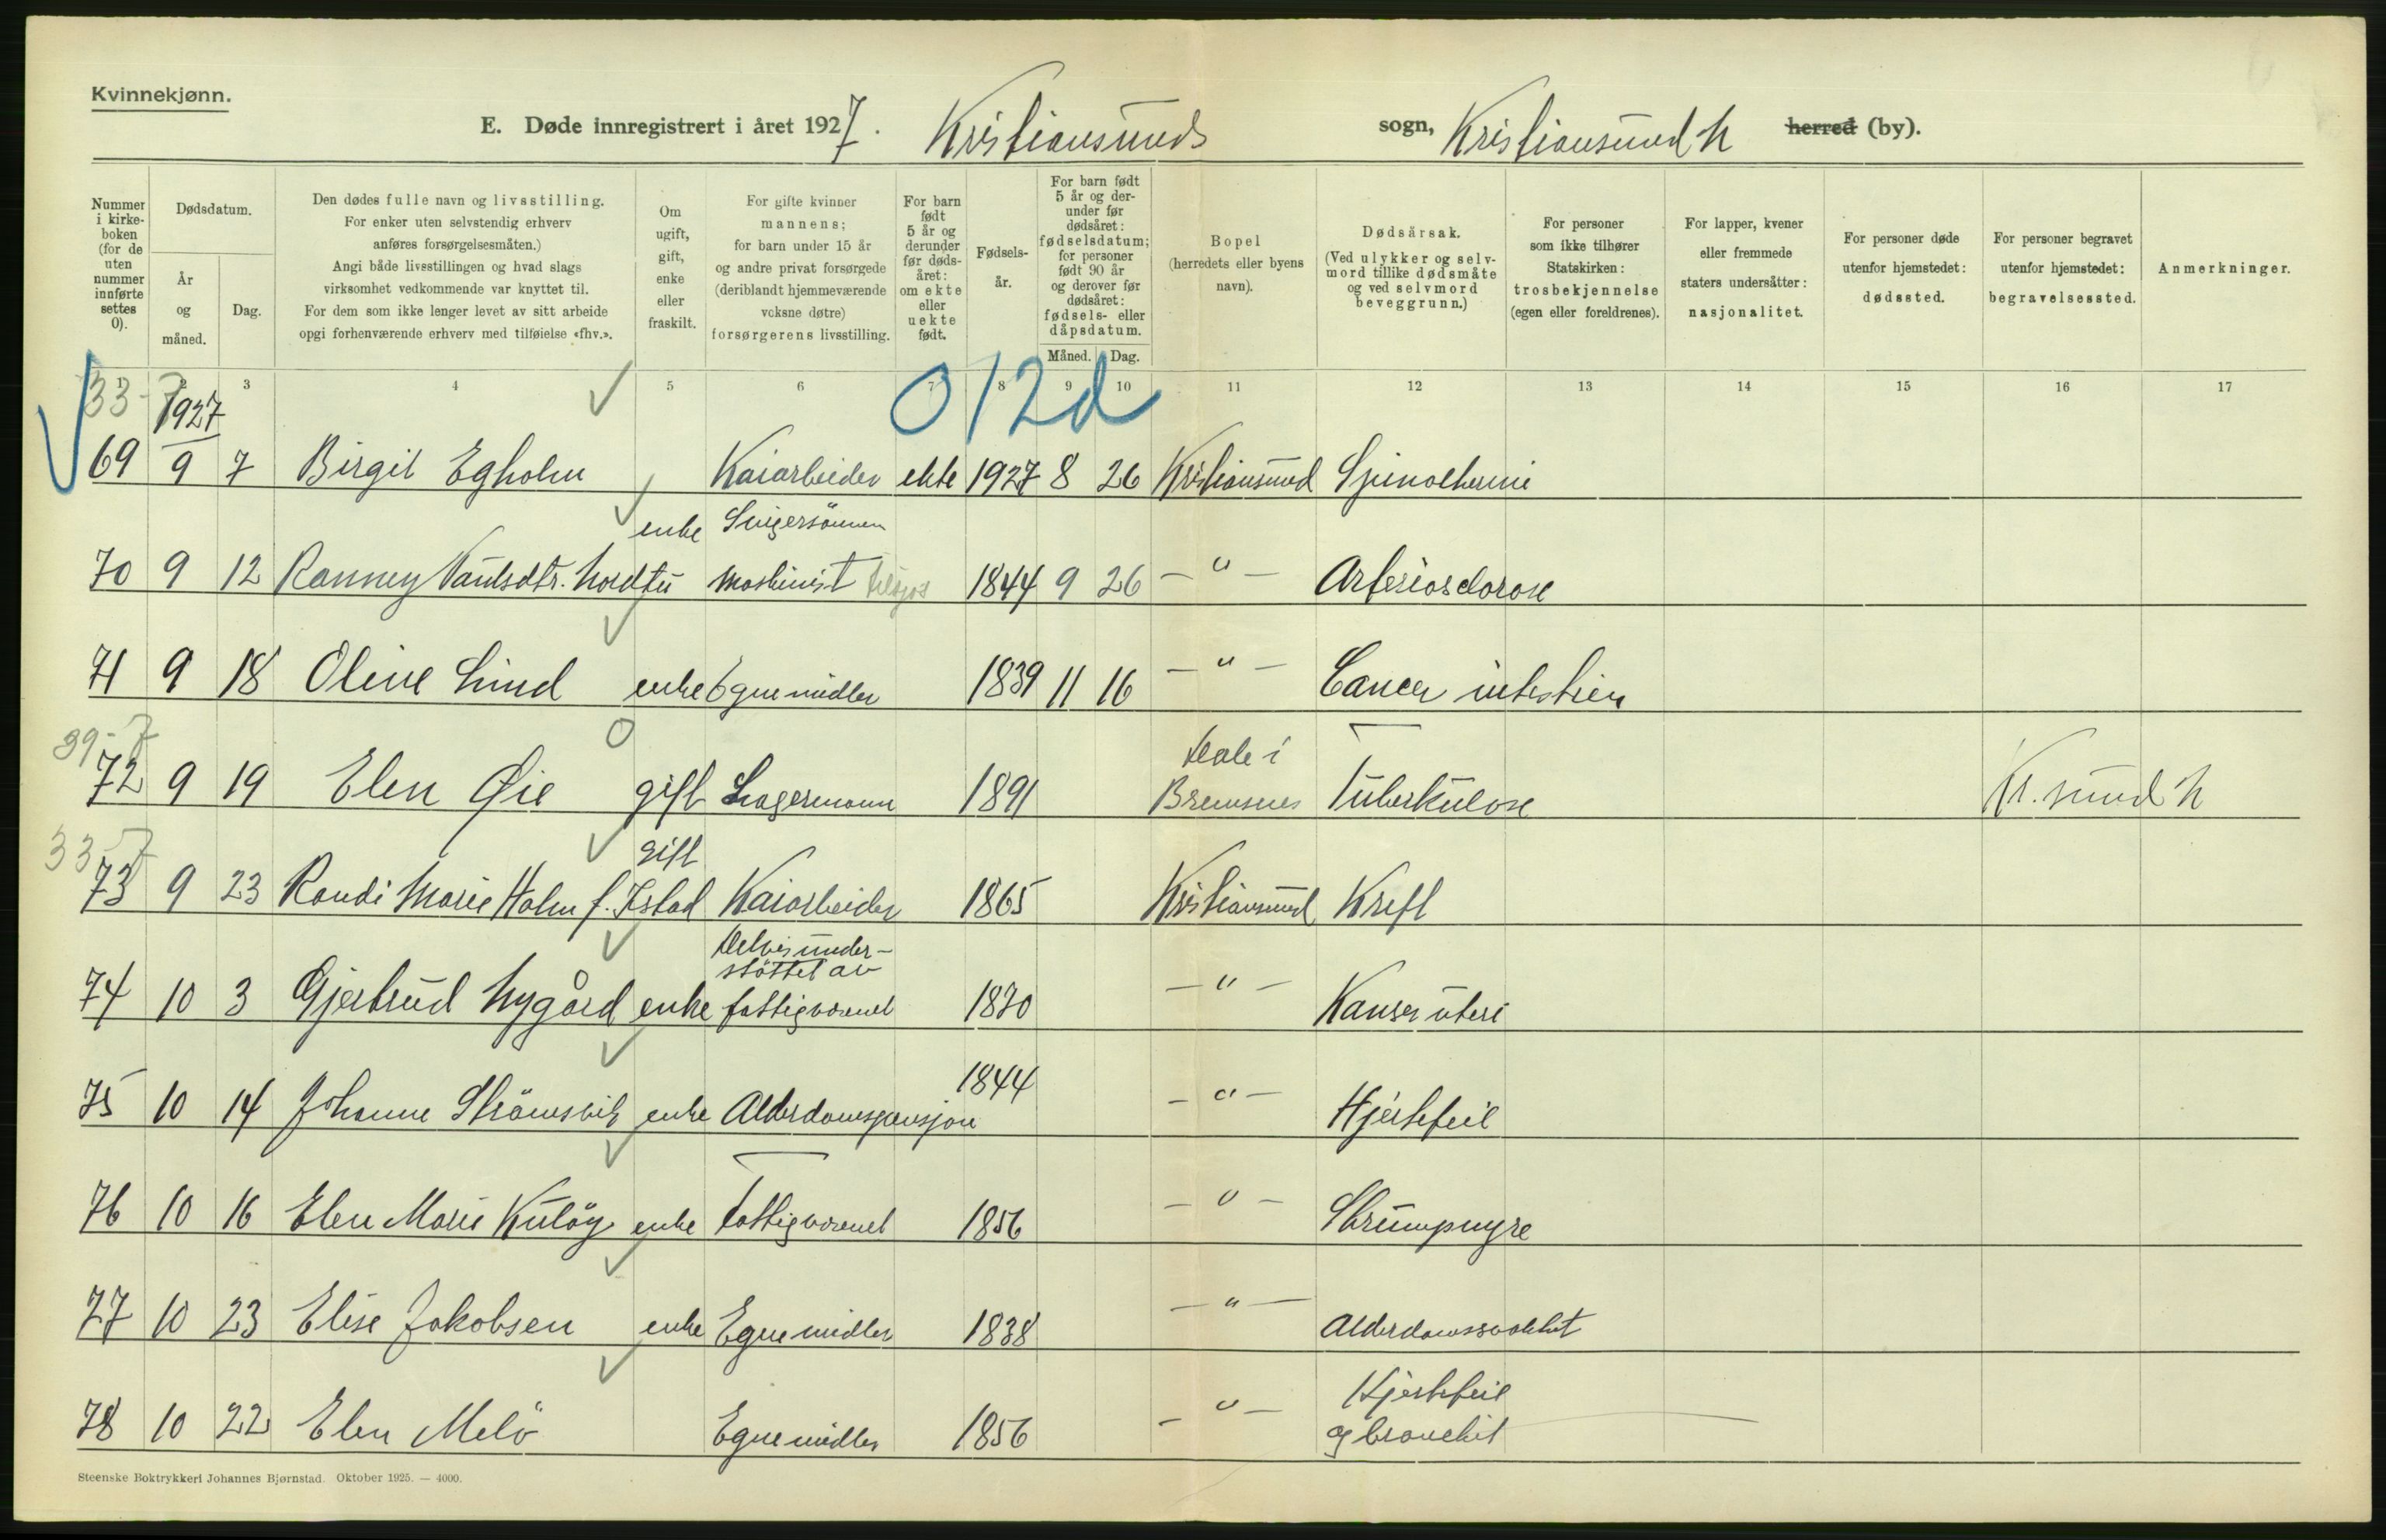 Kvinnekjønn.
E. Døde innregistrert i året 1927. Kristiansunds sogn, Kristiansund N herred (by).
Nummer i kirkeboken (for de uten nummer innførte settes 0).
Dødsdatum.
År og måned.
Dag.
Den dødes fulle navn og livsstilling.
For enker uten selvstendig erhverv
anføres forsørgelsesmåten.)
Angi både livsstillingen og hvad slags
virksomhet vedkommende var knyttet til.
For dem som ikke lenger levet av sitt arbeide
opgi forhenværende erhverv med tilføielse «fhv.».
Om ugift, gift, enke eller fraskilt.
For gifte kvinner
mannens;
for barn under 15 år
og andre privat forsørgede
(deriblandt hjemmeværende
voksne døtre)
forsørgerens livsstilling.
For barn født 5 år og derunder før dødsåret: om ekte eller uekte født.
Fødselsår.
For barn født 5 år og derunder før dødsåret: fødselsdatum; for personer født 90 år og derover før dødsåret: fødsels- eller dåpsdatum.
Måned. Dag.
Bopel
(herredets eller byens
navn).
Dødsårsak.
(Ved ulykker og selvmord tillike dødsmåte
og ved selvmord
beveggrunn.)
For personer
som ikke tilhører
Statskirken:
trosbekjennelse
(egen eller foreldrenes).
For lapper, kvener
eller fremmede
staters undersåtter:
nasjonalitet.
For personer døde
utenfor hjemstedet:
dødssted.
For personer begravet
utenfor hjemstedet:
begravelsessted.
Anmerkninger.
1 2 3 4 5 6 7 8 9 10 11 12 13 14 15 16 17
33-7 1927 0/12d
69 9 7 Birgit Egholm Kaiarbeider ekte 1927 8 26 Kristiansund
enke
70 9 12 Ranney Paulsdtr. Nordtu maskinist tilsjøs 1844 9 26 — " — Arteriosclorose
71 9 18 Oline Lind enke Egne midler 1839 11 16 — " — Cancer intestin
39-7
72 9 19 Elen Øie gift Lagermann 1891 Dale i Bremsnes Tuberkulose Kr.sund N
33-7
73 9 23 Randi Marie Holm f. Istad gift Kaiarbeider 1865 Kristiansund Kreft
74 10 3 Gjertrud Nygård enke Delvis understøttet av fattigvesenet 1870 — " — Kanser uteri
75 10 14 Johanne Strömsvik enke Alderdomspensjon 1844 — " — Hjertefeil
76 10 16 Elen Marie Kulöy enke Fattigvesenet 1856 — " — Skrumpnyre
77 10 23 Elise Jakobsen enke Egne midler 1838 — " — Alderdomssvakhet
78 10 22 Elen Melö Egne midler 1856 — " — Hjertefeil
og bronchit
Steenske Boktrykkeri Johannes Bjørnstad. Oktober 1925. — 4000.